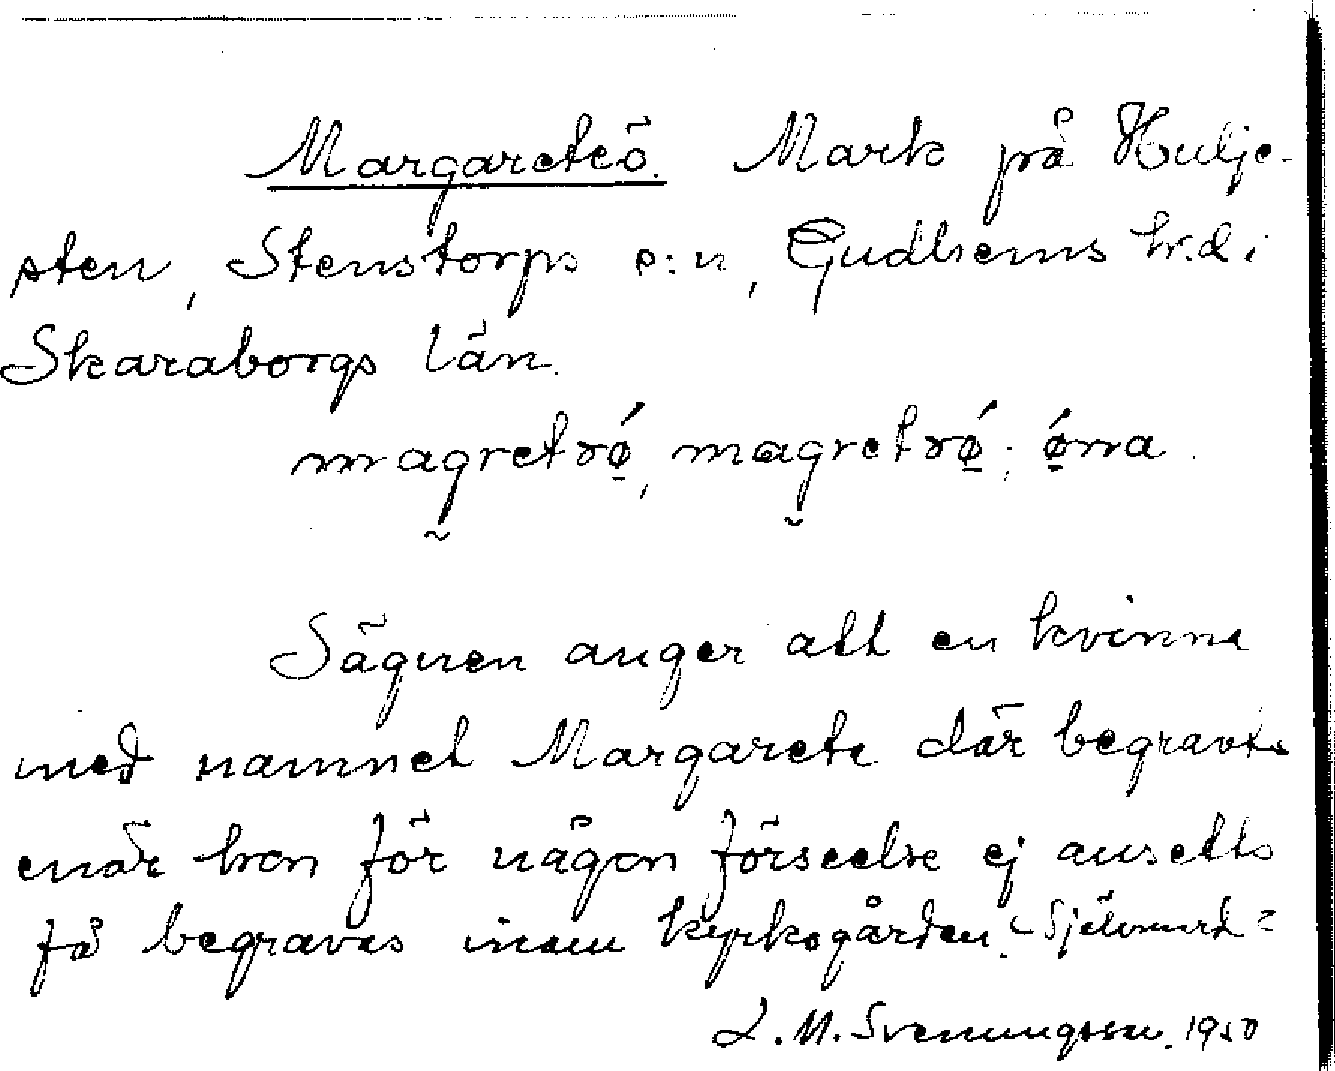 Margareteö. Mark på Hulje-
sten, Stenstorps s:n, Gudhems hd i
Skaraborgs län.
magretrǿ, magretrǿ; ǿrra.
Sägnen anger att en kvinna
med namnet Margareta där begravts
enär hon för någon förseelse ej ansetts
få begravas inom kyrkogården. (Självmord?
L. M. Svenungsson. 1950